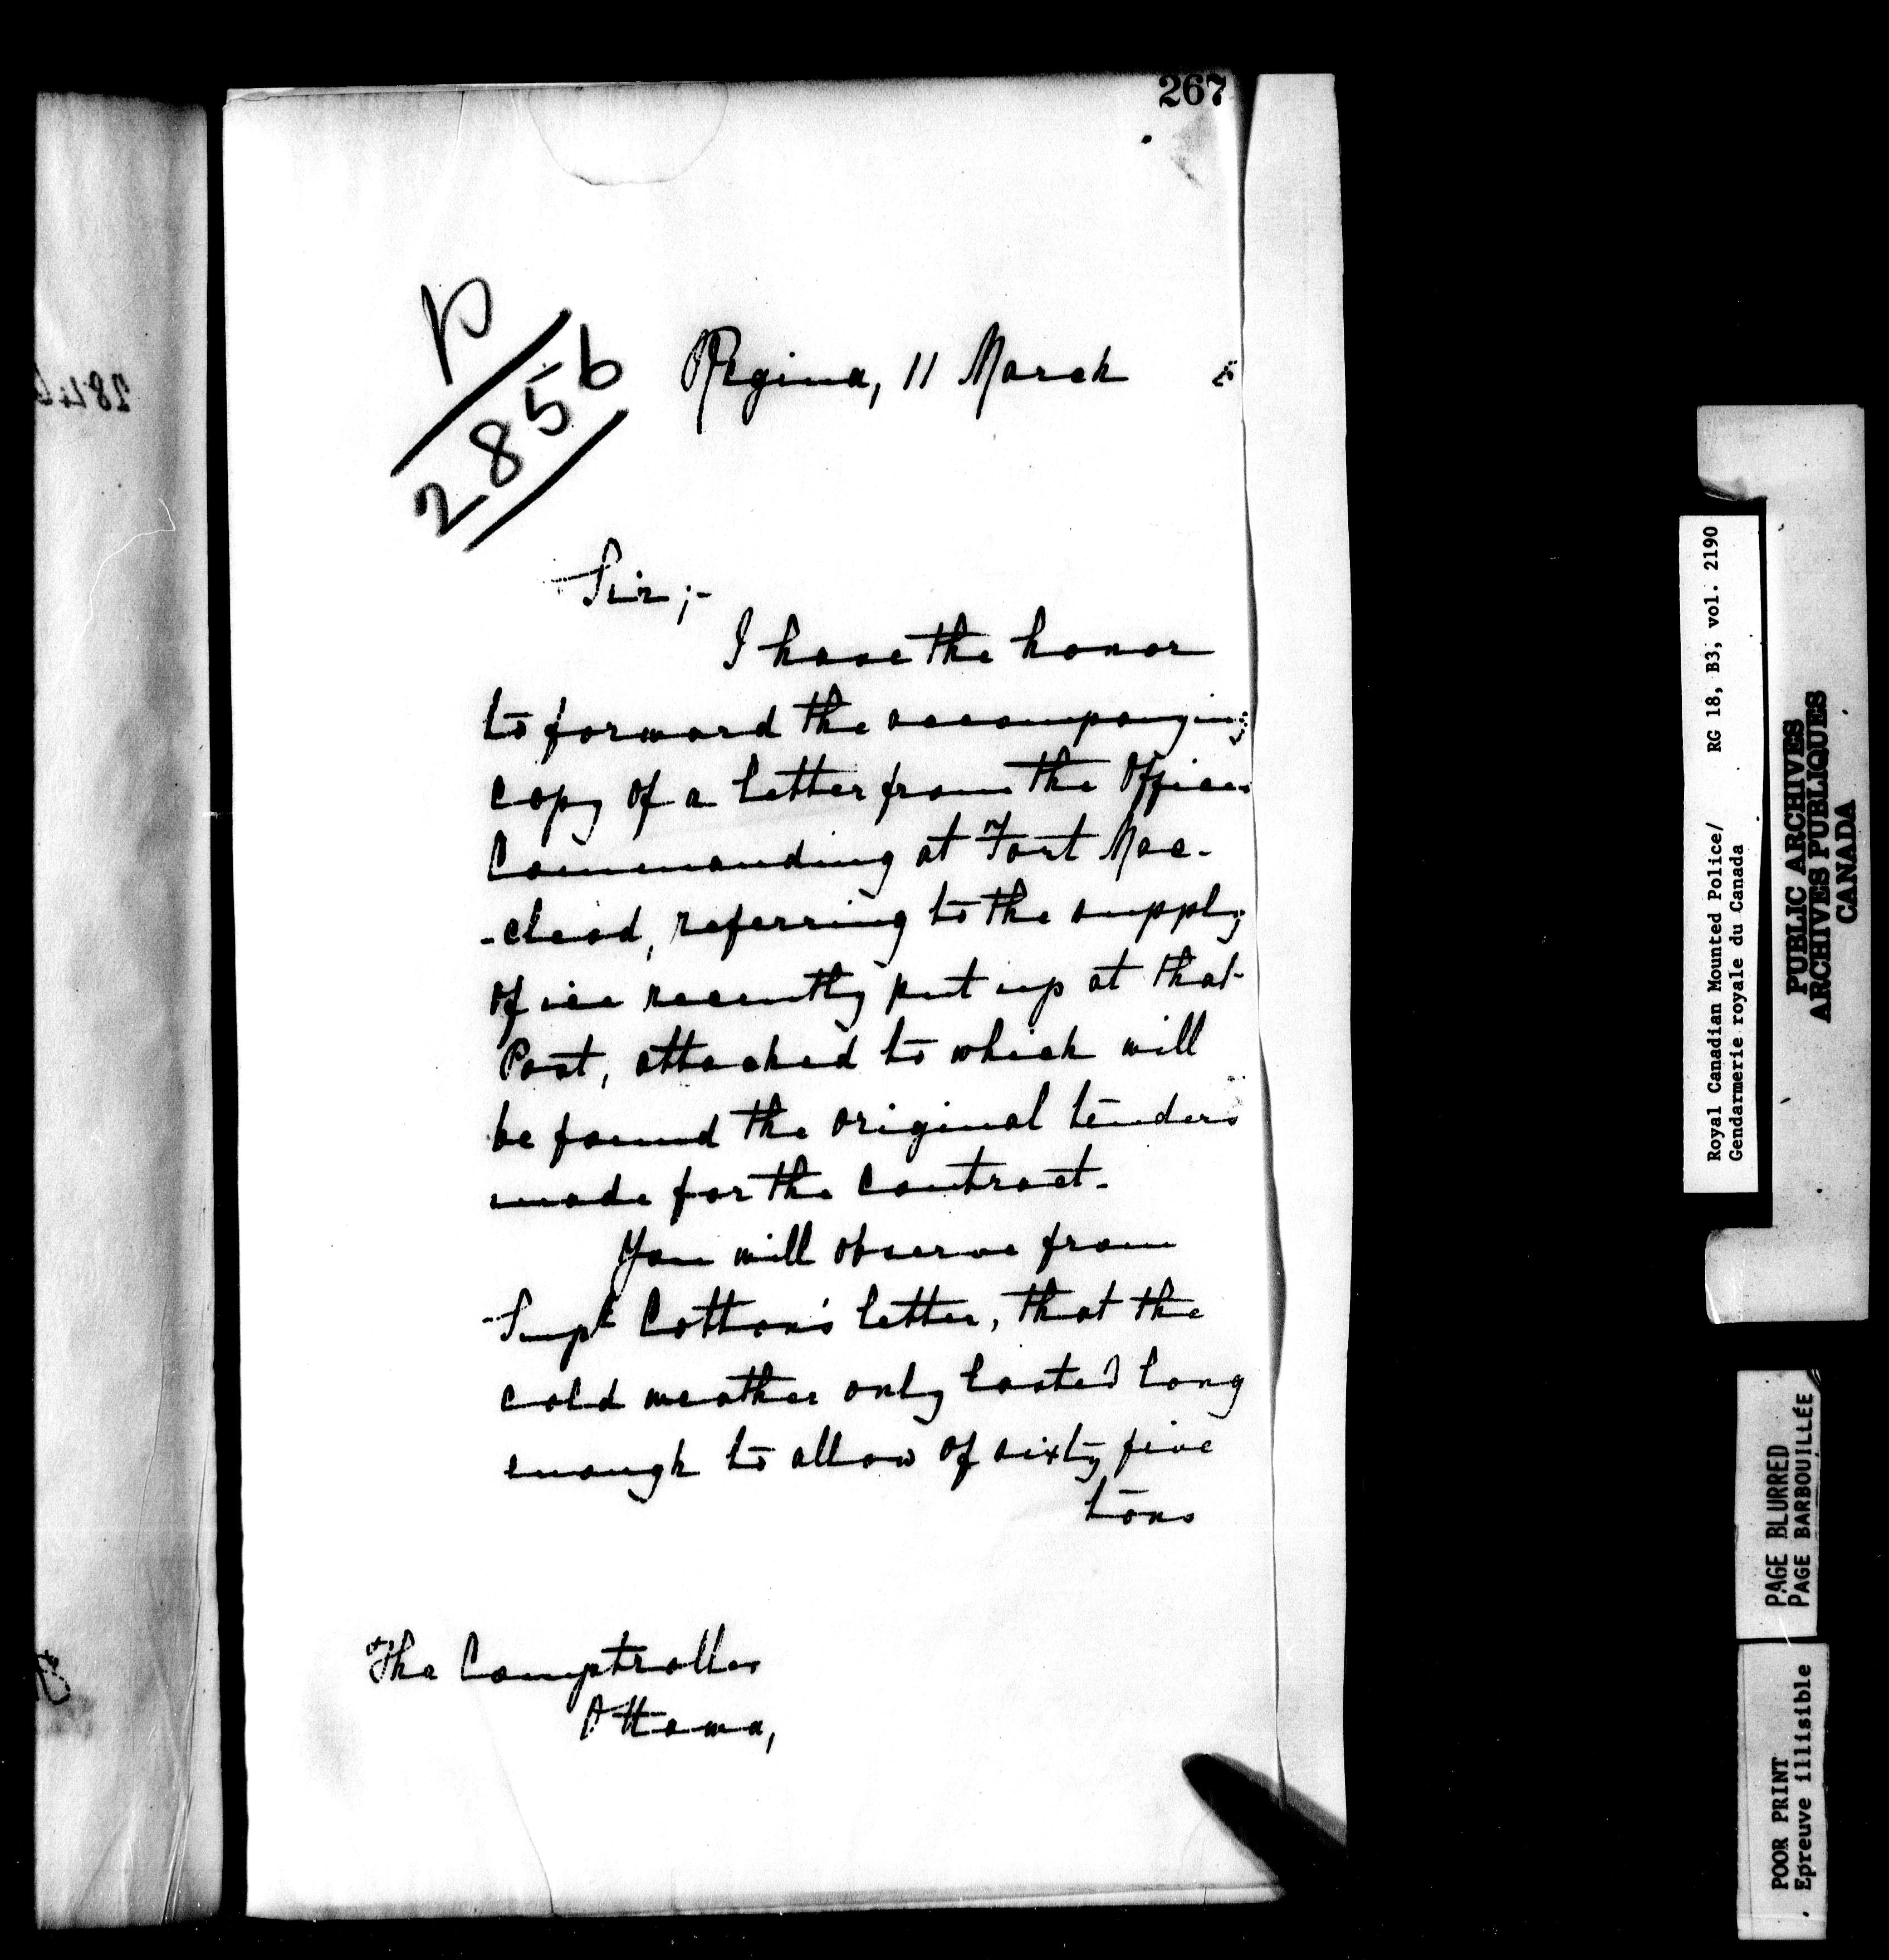 267
P
2856
Regina, 11 March
Sir;-
I have the honor
to forward the accompanying
copy of a letter from the Officer
Commanding at Fort Mac-
-cleod, referring to the supply
of ice recently put up at that
Post, attached to which will
be found the original tenders
made for the contract.
You will observe from
Supt Cotton's letter, that the
cold weather only lasted long
enough to allow of sixty five
tons
The Comptroller
Ottawa,
Royal Canadian Mounted Police/ RG 18, B3, vol. 2190
Gendarmerie royale du Canada
PUBLIC ARCHIVES
ARCHIVES PUBLIQUES
CANADA
PAGE BLURRED
PAGE BARBOUILLÉE
POOR PRINT
Epreuve illisible